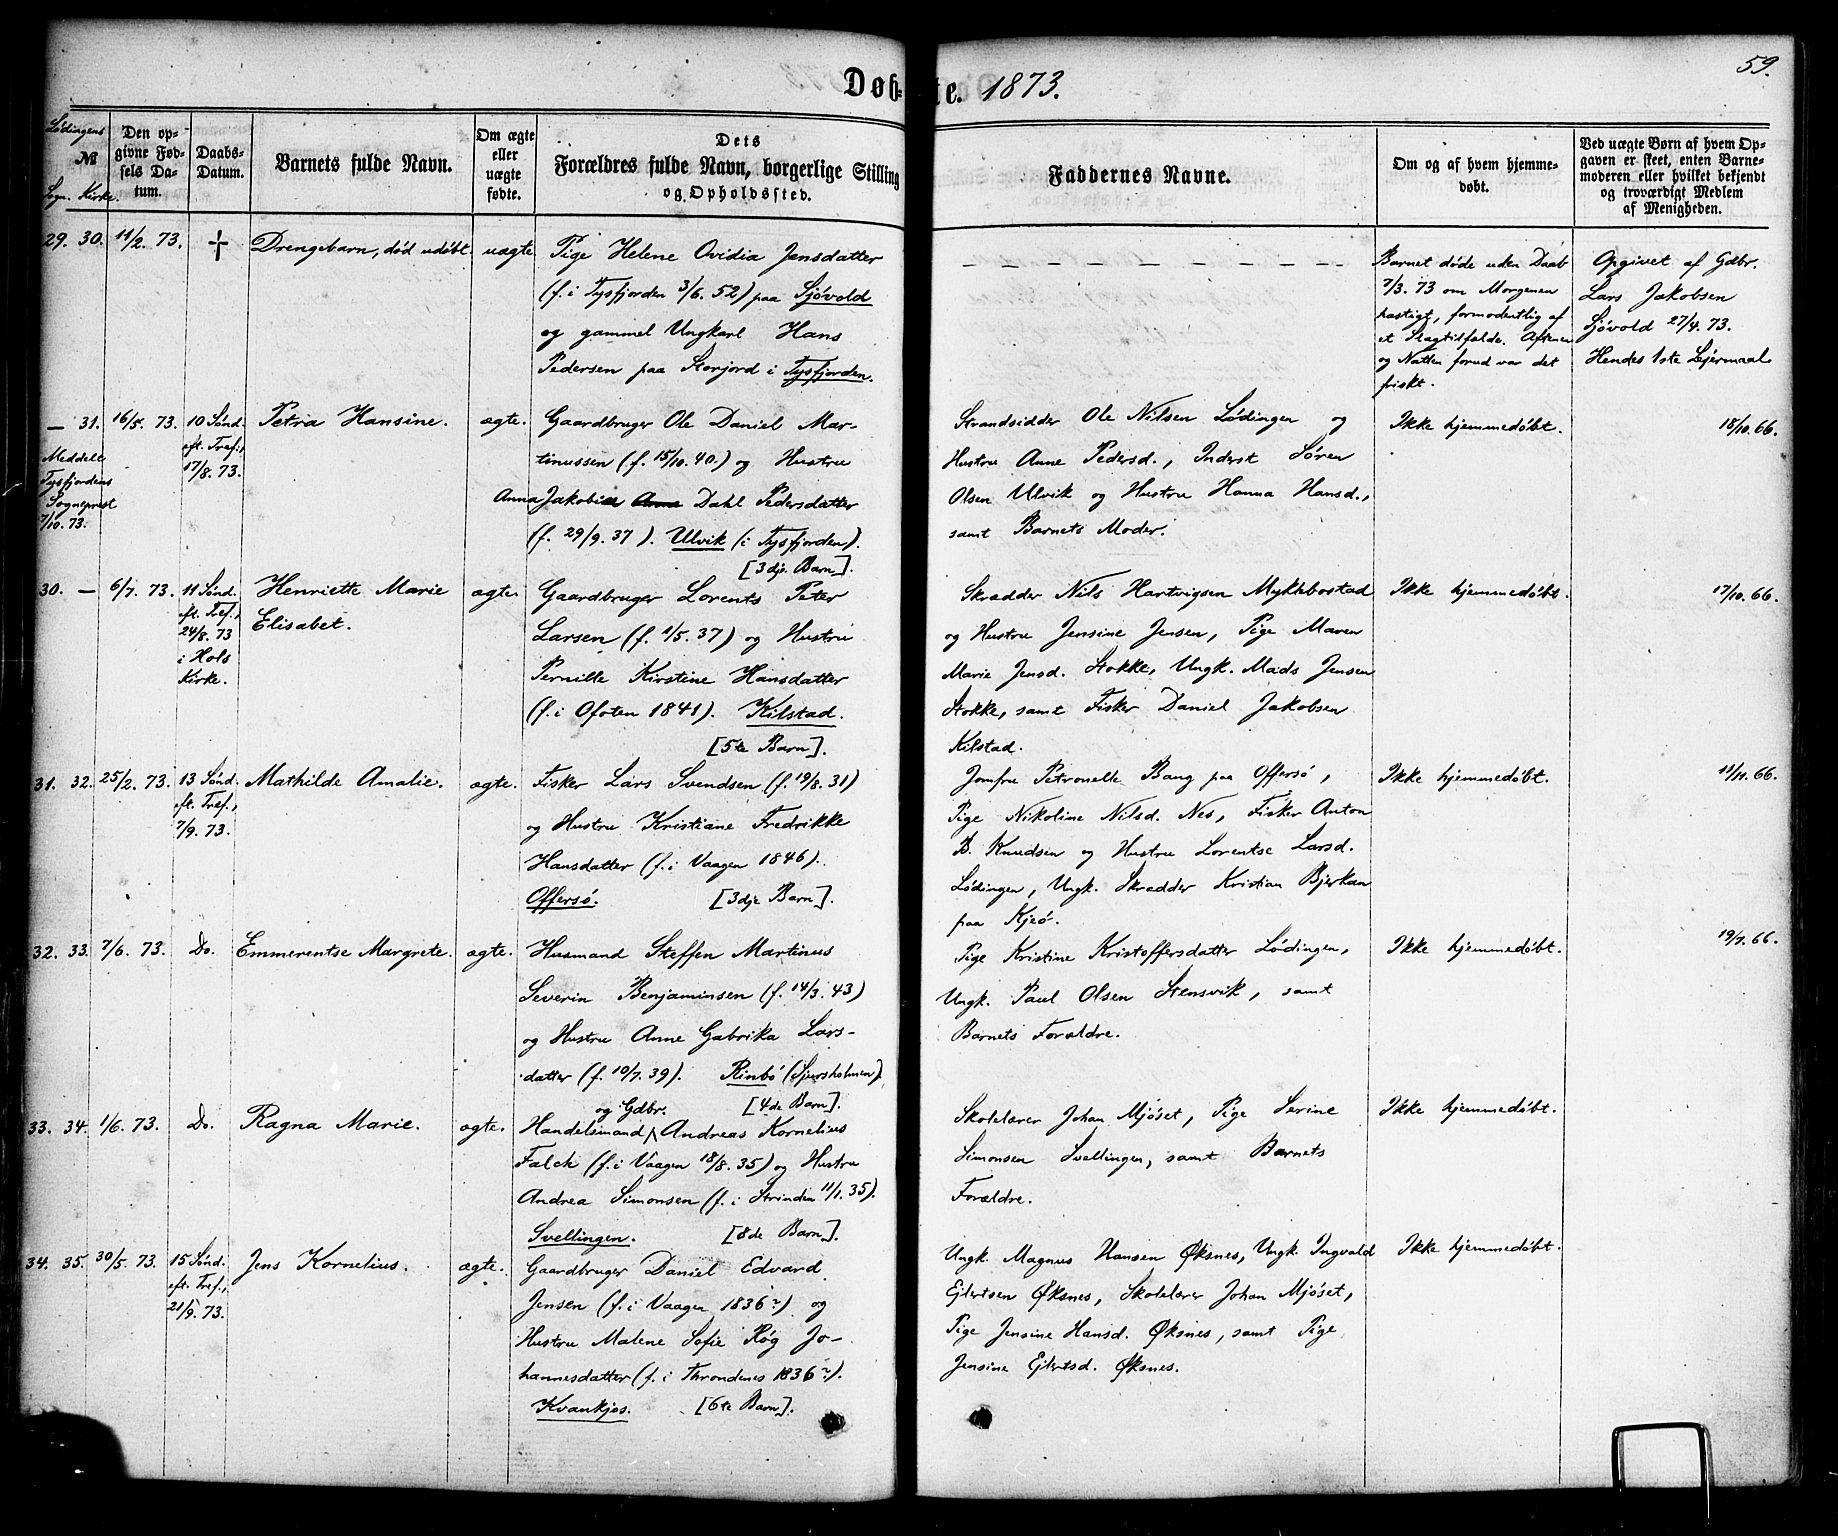 Døb-te. 1873.
59.
Lødingens
№
Sogn. Kirke.
Den op-
givne Fød-
sels Da-
tum.
Daabs-
Datum.
Barnets fulde Navn.
Om ægte
eller
uægte
fødte.
Dets
Forældres fulde Navn, borgerlige Stilling
og Opholdssted.
Faddernes Navne.
Om og af hvem hjemme-
døbt.
Ved uægte Børn af hvem Op-
gaven er skeet, enten Barne-
moderen eller hvilket bekjendt
og troværdigt Medlem
af Menigheden.
29. 30. 11/2. 73. † Drengebarn, død udøbt. uægte
Pige Helene Ovidia Jensdatter
(f. i Tysfjorden 3/6. 52) paa Sjøvold
og gammel Ungkarl Hans
Pedersen paa Storjord i Tysfjorden.
Barnet døde uden Daab
7/3. 73 om Morgenen
hastigt, formodentlig af
et Slagtilfælde. Aftenen
og Natten forud var det
friskt.
Opgivet af Gdbr.
Lars Jakobsen
Sjøvold 27/4. 73.
Hendes 1ste Lejermaal
— 31. 16/5. 73.
Meddelt
Tysfjordens
Sogneprest
7/10. 73.
10 Sønd.
eft. Tref.,
17/8. 73.
Petra Hansine. ægte.
Gaardbruger Ole Daniel Mar-
tinussen (f. 15/10. 40.) og Hustru
Anna Jakobia Anna Dahl Pedersdatter
(f. 29/9. 37). Ulvik (i Tysfjorden).
[3dje Barn].
Strandsidder Ole Nilsen Lødingen og
Hustru Anne Pedersd., Inderst Søren
Olsen Ulvik og Hustru Hanna Hansd.,
samt Barnets Moder.
Ikke hjemmedøbt.
18/10. 66.
30. — 6/7. 73.
11 Sønd.
eft. Tref.,
24/8. 73
i Hols
Kirke.
Henriette Marie
Elisabet.
ægte.
Gaardbruger Lorents Peter
Larsen (f. 1/5. 37) og Hustru
Pernille Kirstine Hansdatter
(f. i Ofoten 1841). Kilstad.
[5te Barn].
Skrædder Nils Hartvigsen Myklebostad
og Hustru Jensine Jensen, Pige Maren
Marie Jensd. Stokke, Ungk. Mads Jensen
Stokke, samt Fisker Daniel Jakobsen
Kilstad.
Ikke hjemmedøbt.
17/10. 66.
31. 32. 25/2. 73.
13 Sønd.
eft. Tref.,
7/9. 73.
Mathilde Amalie. ægte.
Fisker Lars Svendsen (f. 19/8. 31)
og Hustru Kristiane Fredrikke
Hansdatter (f. i Vaagen 1846).
Offersø. [3dje Barn].
Jomfru Petronelle Bang paa Offersø,
Pige Nikoline Nilsd. Nes, Fisker Anton
B. Knudsen og Hustru Lorentse Larsd.
Lødingen, Ungk. Skrædder Kristian Bjerkan
paa Kjeø.
Ikke hjemmedøbt.
11/11. 66.
32. 33. 7/6. 73. Do. Emmerentse Margrete. ægte.
Husmand Steffen Martinus
Severin Benjaminsen (f. 14/3. 43)
og Hustru Anne Gabrika Lars-
datter (f. 10/7. 39). Rinbø (Sjursholmen).
[4de Barn].
Pige Kristine Kristoffersdatter Lødingen,
Ungk. Paul Olsen Stensvik, samt
Barnets Forældre.
Ikke hjemmedøbt.
19/7. 66.
33. 34. 1/6. 73. Do. Ragna Marie. ægte.
og Gdbr.
Handelsmand Andreas Kornelius
Falch (f. i Vaagen 18/8. 35) og Hustru
Andrea Simonsen (f. i Strinden 11/1. 35).
Svellingen. [8de Barn].
Skolelærer Johan Mjøset, Pige Serine
Simonsen Svellingen, samt Barnets
Forældre.
Ikke hjemmedøbt.
34. 35. 30/5. 73.
15 Sønd.
eft. Tref.,
21/9. 73.
Jens Kornelius. ægte.
Gaardbruger Daniel Edvard
Jensen (f. i Vaagen 1836?) og
Hustru Malene Sofie Røg Jo-
hannesdatter (f. i Throndenes 1836?).
Kvankjos. [6te Barn].
Ungk. Magnus Hansen Øksnes, Ungk. Ingvald
Ejlertsen Øksnes, Skolelærer Johan Mjøset,
Pige Jensine Hansd. Øksnes, samt Pige
Jensine Ejlertsd. Øksnes.
Ikke hjemmedøbt.